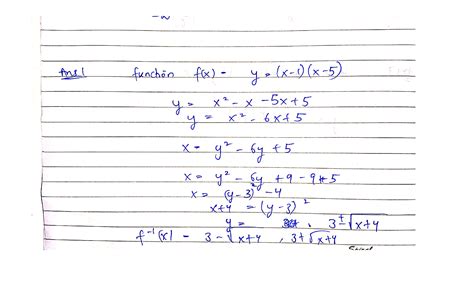 -∞
Ans.1 function f(x) - y = (x-1)(x-5)
y = x² - x - 5x + 5
y = x² - 6x + 5
x = y² - 6y + 5
x = y² - 6y + 9 - 9 + 5
x = (y-3)² - 4
x+4 = (y-3)²
y = 3 ± √x+4
f⁻¹(x) - 3 - √x+4 , 3 + √x+4